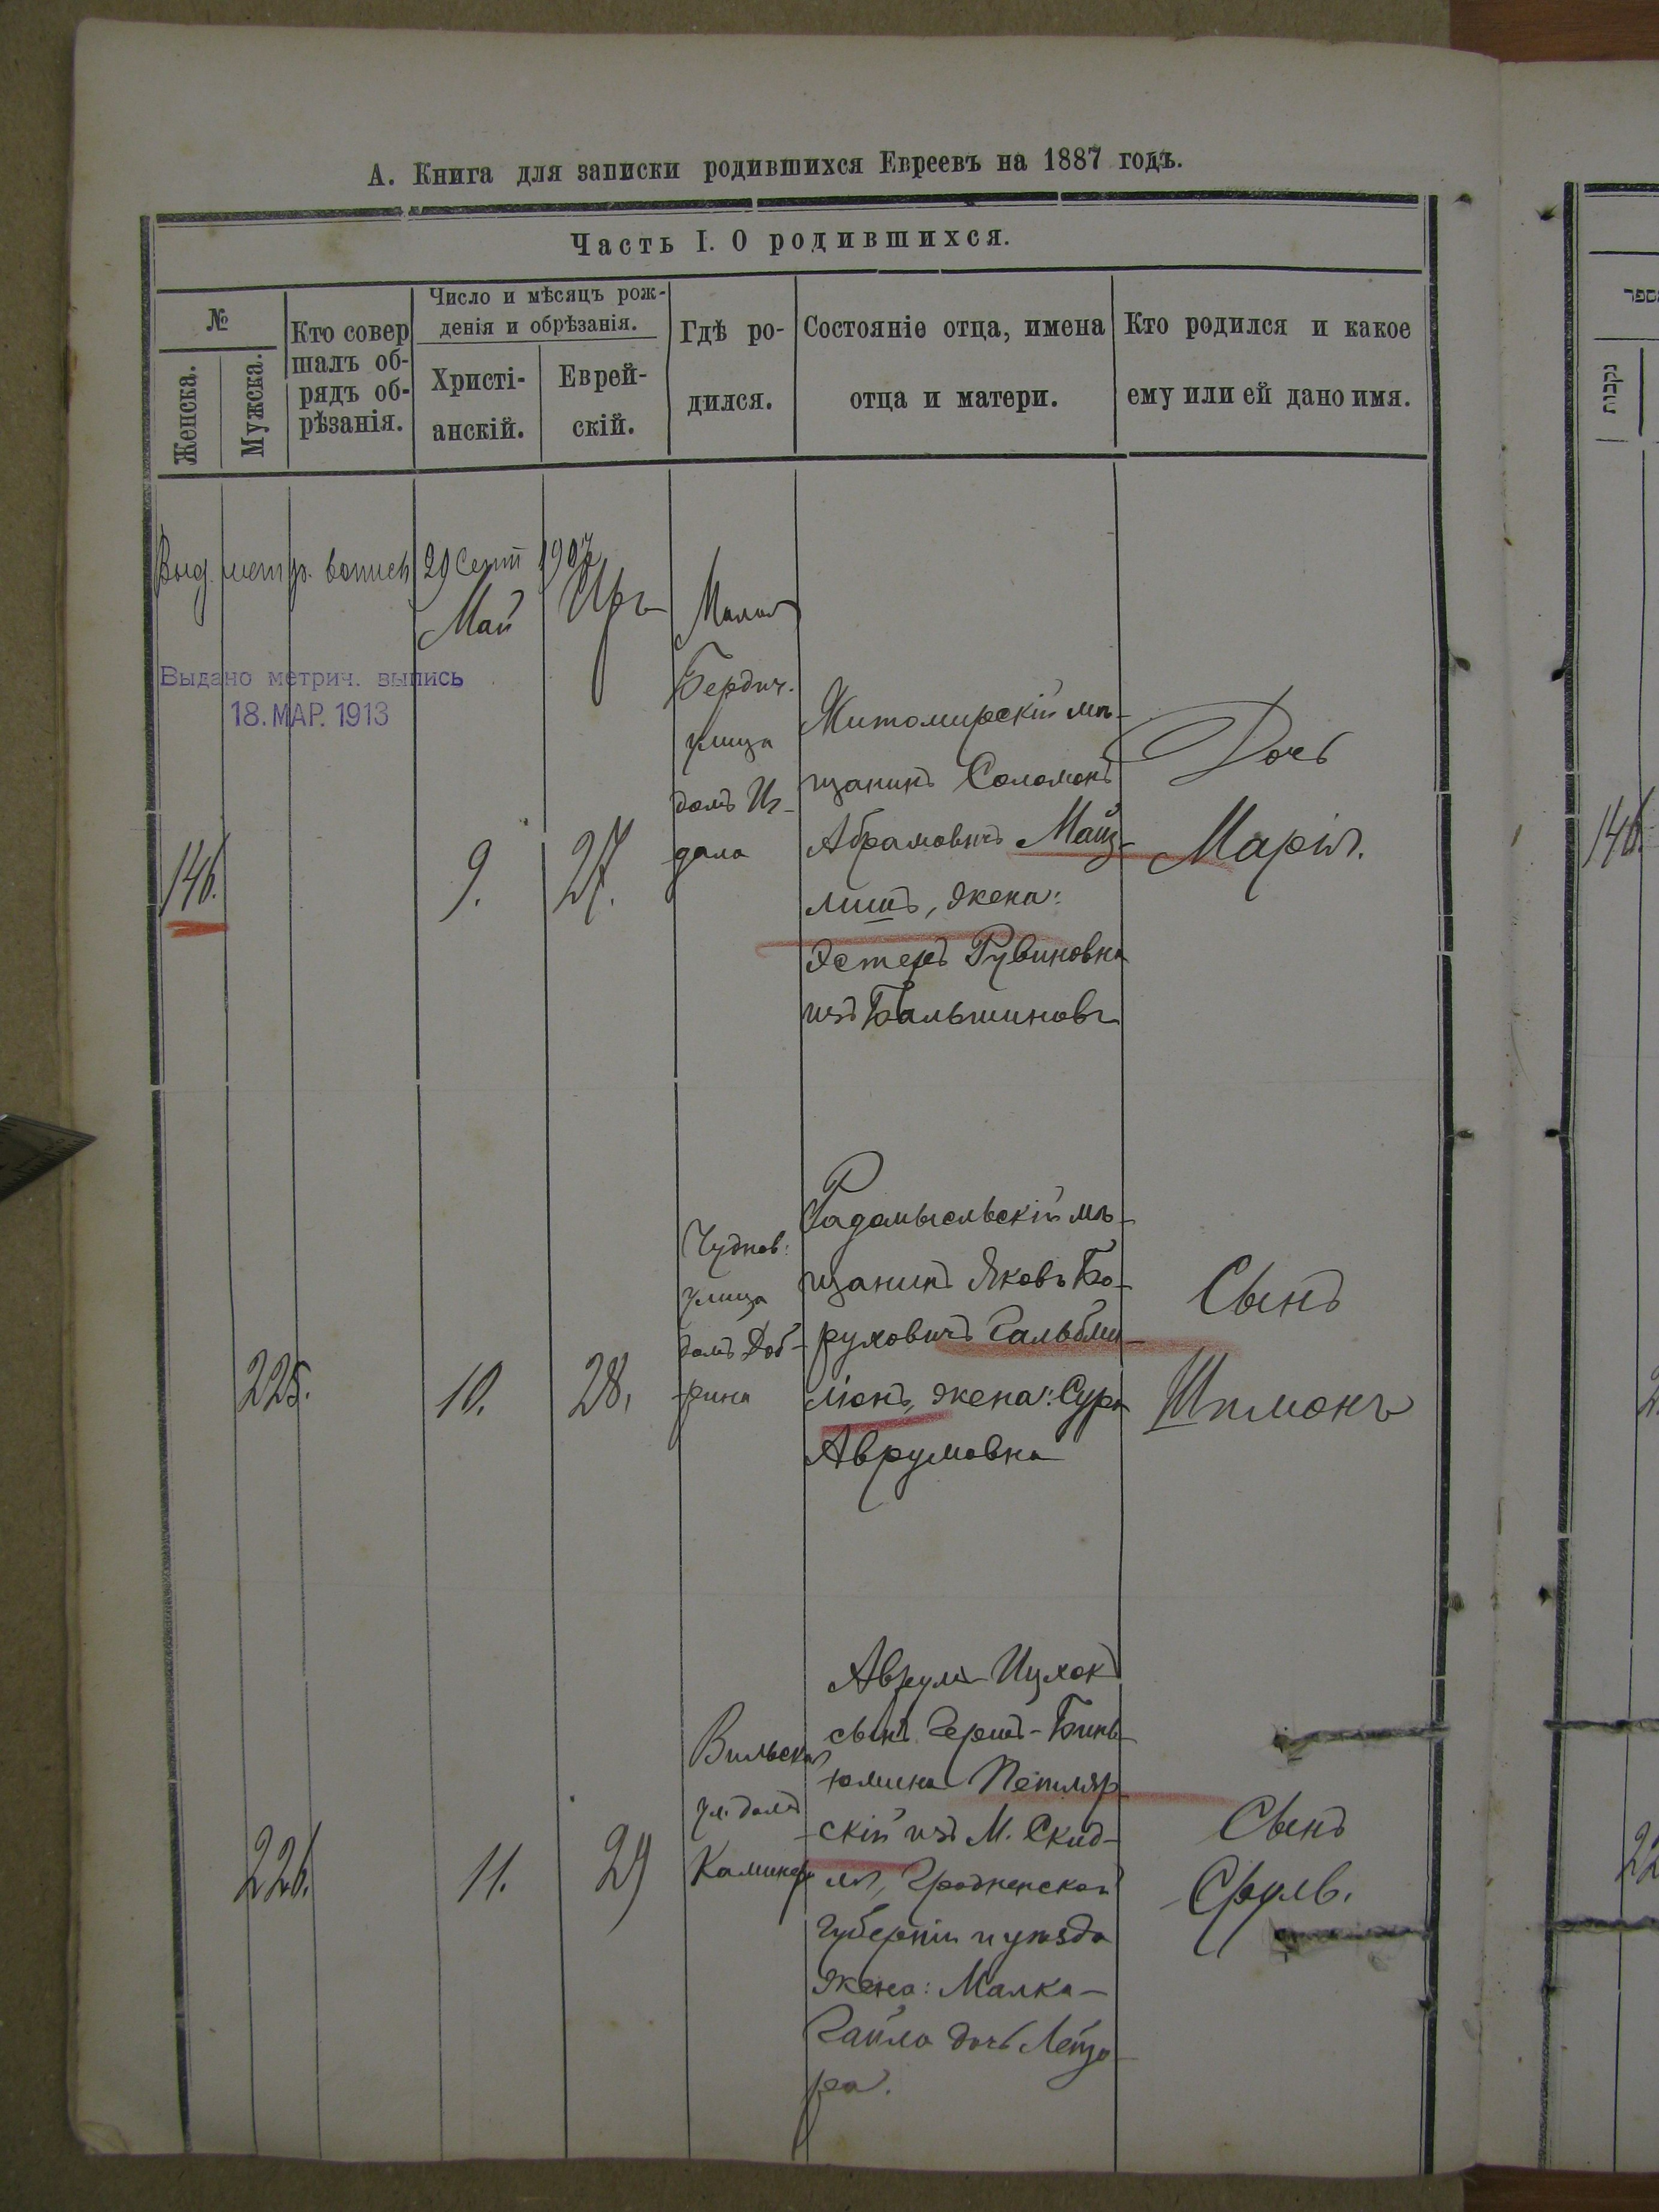 А. Книга для записки родившихся Евреевъ на 1887 годъ.
Часть I. О родившихся.
№
Женска.
Мужска.
Кто совер
шалъ об-
рядъ об-
рѣзанія.
Число и мѣсяцъ рож-
денія и обрѣзанія.
Христі-
анскій.
Еврей-
скій.
Гдѣ ро-
дился.
Состояніе отца, имена
отца и матери.
Кто родился и какое
ему или ей дано имя.
Выд. метр. выпись 29 Сент 1907
Выдано метрич. выпись
18. МАР. 1913
146.
Май
9.
Іяръ
27.
Малая
Бердич.
улица
домъ Из-
дала
Житомирскій мѣ-
щанинъ Соломонъ
Абрамовичъ Майз-
лишъ, жена:
Эстеръ Рувиновна
изъ Бальшиновъ
Дочь
Марія.
225.
10.
28.
Чуднов.
улица
домъ Доб-
рина
Радомысльскій мѣ-
щанинъ Яковъ Бо-
руховичъ Гальбми-
ліонъ, жена: Сура
Аврумовна
Сынъ
Шимонъ
226.
11.
29
Вильская
ул. домъ
Каминера
Аврумъ-Ицхокъ
сынъ Гершъ-Бинь-
ямина Петляр
скій изъ М. Скид-
ля, Гродненской
Губерніи и уѣзда
жена: Малка-
Гайла дочь Лейзо-
ра.
Сынъ
Сруль.
מספר
נקבות
146.
22